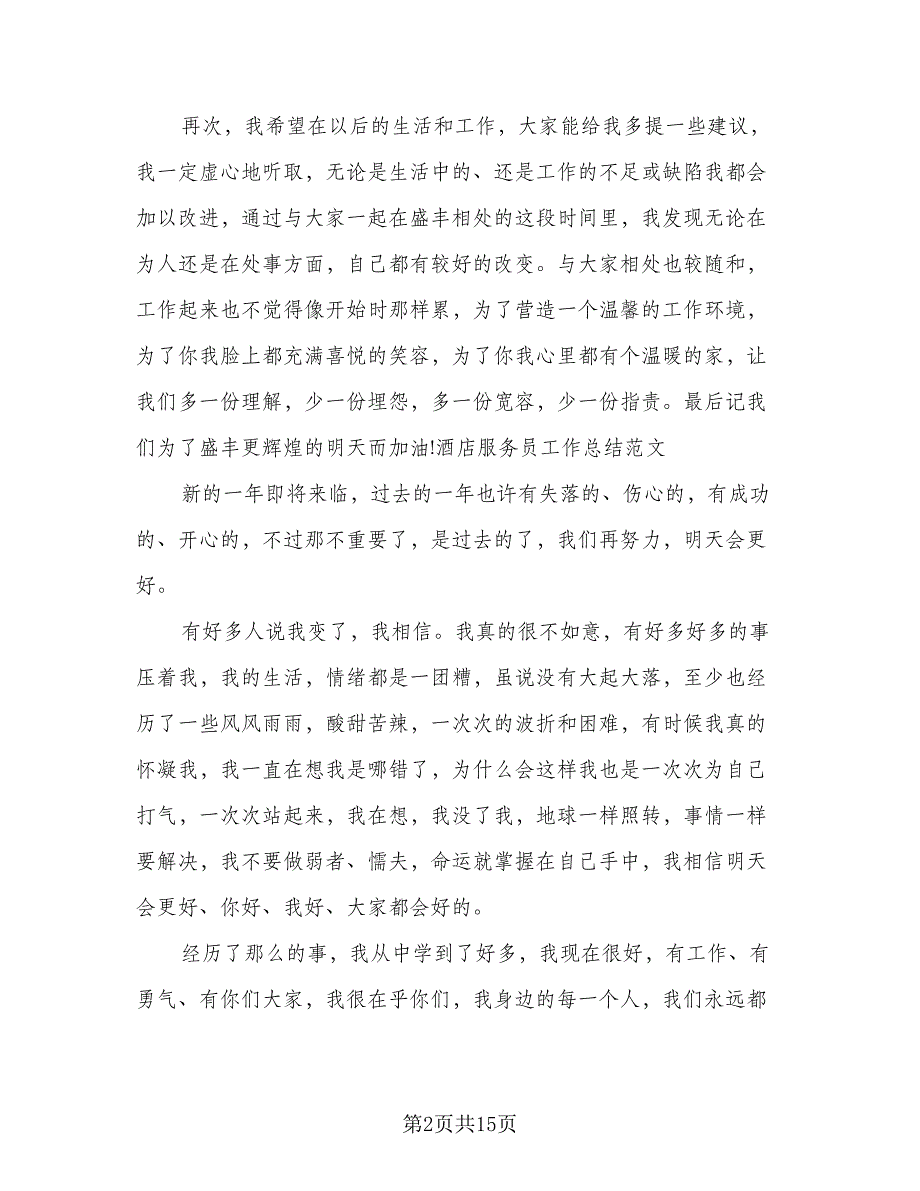 再次，我希望在以后的生活和工作，大家能给我多提一些建议，
我一定虚心地听取，无论是生活中的、还是工作的不足或缺陷我都会
加以改进，通过与大家一起在盛丰相处的这段时间里，我发现无论在
为人还是在处事方面，自己都有较好的改变。与大家相处也较随和，
工作起来也不觉得像开始时那样累，为了营造一个温馨的工作环境，
为了你我脸上都充满喜悦的笑容，为了你我心里都有个温暖的家，让
我们多一份理解，少一份埋怨，多一份宽容，少一份指责。最后记我
们为了盛丰更辉煌的明天而加油!酒店服务员工作总结范文
新的一年即将来临，过去的一年也许有失落的、伤心的，有成功
的、开心的，不过那不重要了，是过去的了，我们再努力，明天会更
好。
有好多人说我变了，我相信。我真的很不如意，有好多好多的事
压着我，我的生活，情绪都是一团糟，虽说没有大起大落，至少也经
历了一些风风雨雨，酸甜苦辣，一次次的波折和困难，有时候我真的
怀凝我，我一直在想我是哪错了，为什么会这样我也是一次次为自己
打气，一次次站起来，我在想，我没了我，地球一样照转，事情一样
要解决，我不要做弱者、懦夫，命运就掌握在自己手中，我相信明天
会更好、你好、我好、大家都会好的。
经历了那么的事，我从中学到了好多，我现在很好，有工作、有
勇气、有你们大家，我很在乎你们，我身边的每一个人，我们永远都
第2页共15页